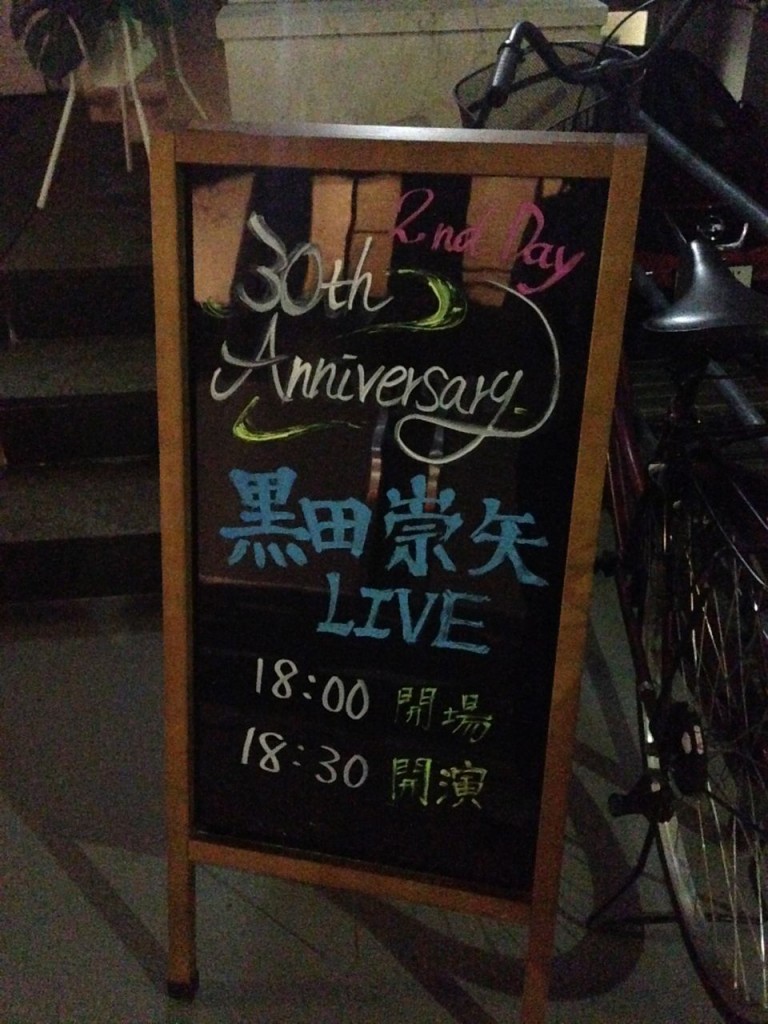 2nd Day
30th
Anniversary
黒田崇矢
LIVE
18:00 開場
18:30 開演